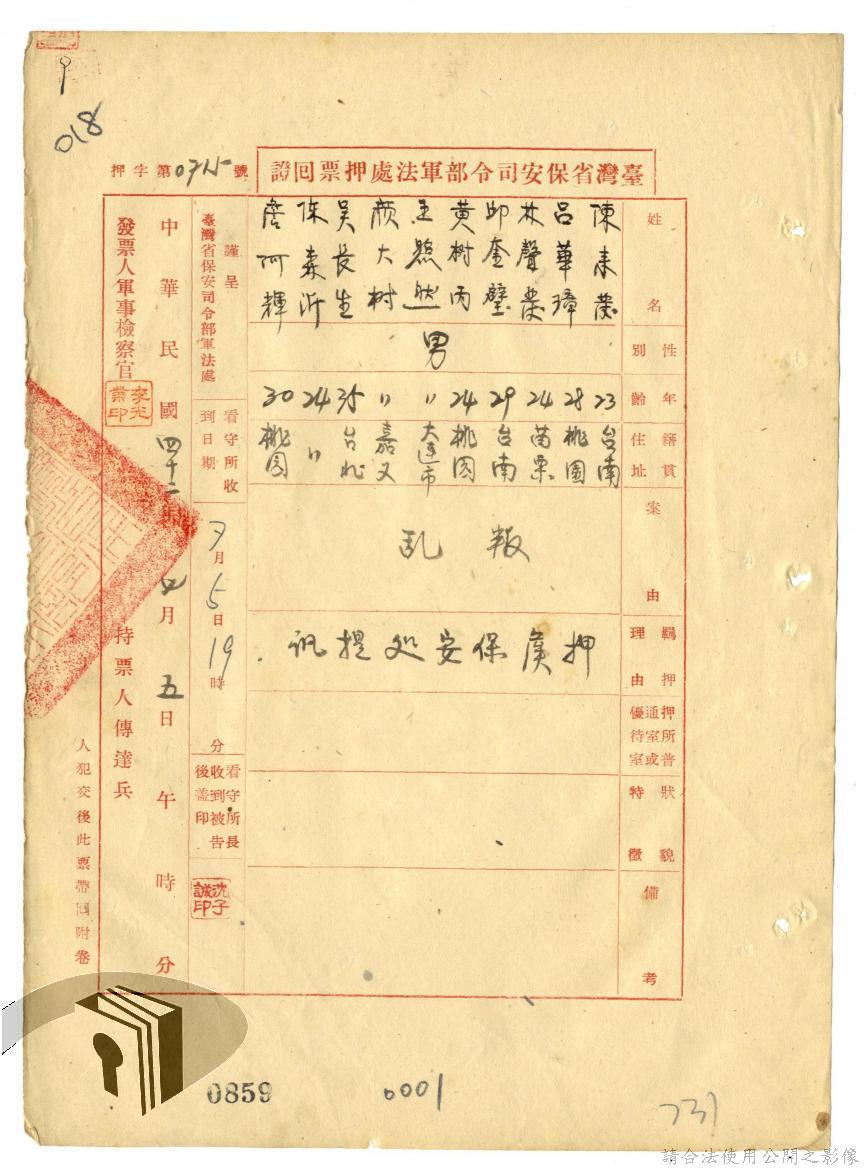 018
臺灣省保安司令部軍法處押票回證
押字第0715號
姓名
陳來發
呂華璋
林聲發
邱奎壁
黃树丙
王照然
顏大树
吴長生
森沂
詹阿輝
性別
男
年齡
23
28
24
29
24
〃
〃
35
24
30
籍貫住址
台南
桃園
苗栗
台南
桃园
大連市
嘉义
台北
〃
桃园
案由
叛乱
羈押理由
押候保安処提訊.
押所普通室或優待室
狀貌特徵
備考
謹呈
臺灣省保安司令部軍法處
看守所收到日期
月5日19時 分
看守所長收到被告後蓋印
沈子誠印
中華民國四十二年 月五日 午 時 分
發票人軍事檢察官
李光業印
持票人傳達兵
人犯交後此票帶回附卷
0859
0001
731
請合法使用公開之影像